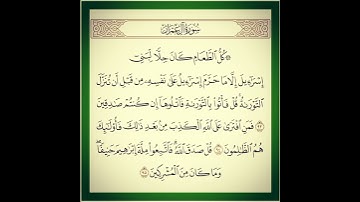 سُورَةُ آلِ عِمْرَان
۞ كُلُّ الطَّعَامِ كَانَ حِلًّا لِّبَنِي
إِسْرَاءِيلَ إِلَّا مَا حَرَّمَ إِسْرَاءِيلُ عَلَىٰ نَفْسِهِ مِن قَبْلِ أَن تُنَزَّلَ
التَّوْرَاةُ قُلْ فَأْتُوا بِالتَّوْرَاةِ فَاتْلُوهَا إِن كُنتُمْ صَادِقِينَ
٩٣ فَمَنِ افْتَرَىٰ عَلَى اللَّهِ الْكَذِبَ مِن بَعْدِ ذَٰلِكَ فَأُولَٰئِكَ
هُمُ الظَّالِمُونَ ٩٤ قُلْ صَدَقَ اللَّهُ فَاتَّبِعُوا مِلَّةَ إِبْرَاهِيمَ حَنِيفًا
وَمَا كَانَ مِنَ الْمُشْرِكِينَ ٩٥